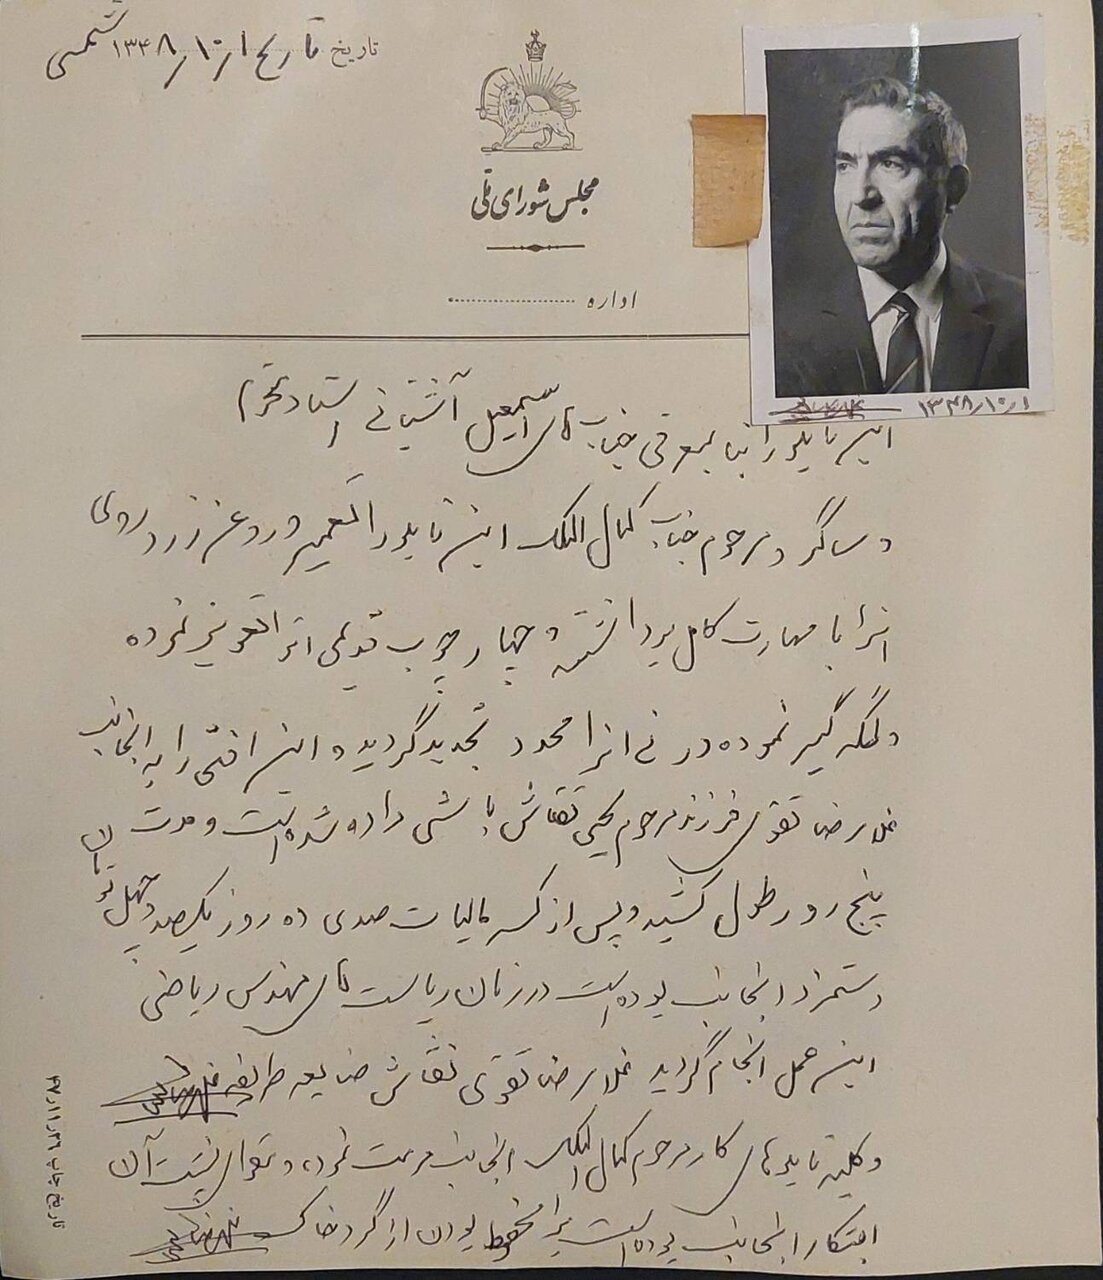 تاریخ تاریخ ۱۳۴۸/۱۰/۱ شمسی
مجلس شورای ملی
اداره
۱۳۴۸/۱۰/۱
این تابلو را بنا بمعرفی جناب آقای اسمعیل آشتیانی استاد محترم
و شاگرد مرحوم جناب کمال الملک این تابلو را تعمیر و روغن زرد روی
انرا با مهارت کامل برداشته و چهار چوب قدیمی انرا تعویض نموده
و نموده انرا مجدد تجدید گردید و این افتخار را به اینجانب
غلامرضا تقوی فرزند مرحوم یحیی نقاش باشی داده شده است و مدت
پنج روز طول کشید و پس از کسر مالیات صدی ده روز یکصد و چهل تومان
دستمزد اینجانب بوده است در زمان ریاست آقای مهندس ریاضی
این عمل انجام گردید غلامرضا تقوی نقاش صنایع ظریفه
و کلیه تابلوهای کار مرحوم کمال الملک اینجانب مرمت نموده و پشت آن
ابتکار اینجانب بوده است برا محفوظ بودن از گرد خاک
تاریخ چاپ ۴۷/۱۱/۲۹